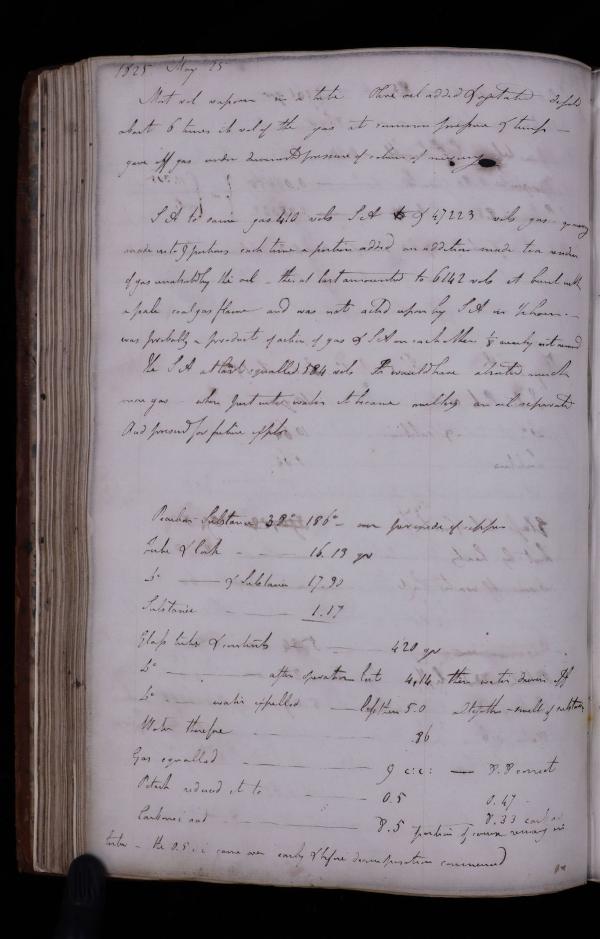 1825 May 25
Most vol vapour in a tube Olive oil added & agitated
about 6 times its vol of the gas at common pressure & temp —
gave off gas under diminished pressure of column of mercury
S A to same gas 410 vols S A to 47223 vols gas
made into 9 portions each time a portion added an addition made to a
of gas unabsorbed by the oil — this at last amounted to 6042 vols it burnt with
a pale coal gas flame and was not acted upon by S A —
was probably a product of action of gas & S A on each other 1/8 nearly
The S A at last equalled 584 vols It would have absorbed much
more gas — when put into water it became milky an oil separated
And preserved for future
Peculiar Substance 38° 186° — over peroxide of copper
Tube & Cork — 16.13 gr
Do — & Substance 17.30
Substance — 1.17
Glass tube & contents — 420 gr
Do — after operation lost 4.14 then water driven off
Do — water expelled — less then 5.0 — smell of substance
Water therefore — .86
Gas equalled — 9 c:i: — 8.8 correct
Potash reduced it to — 0.5 0.47
Carbonic acid — 8.5 8.33
portion of
tube — the 0.5 c.i. came over early & before decomposition commenced